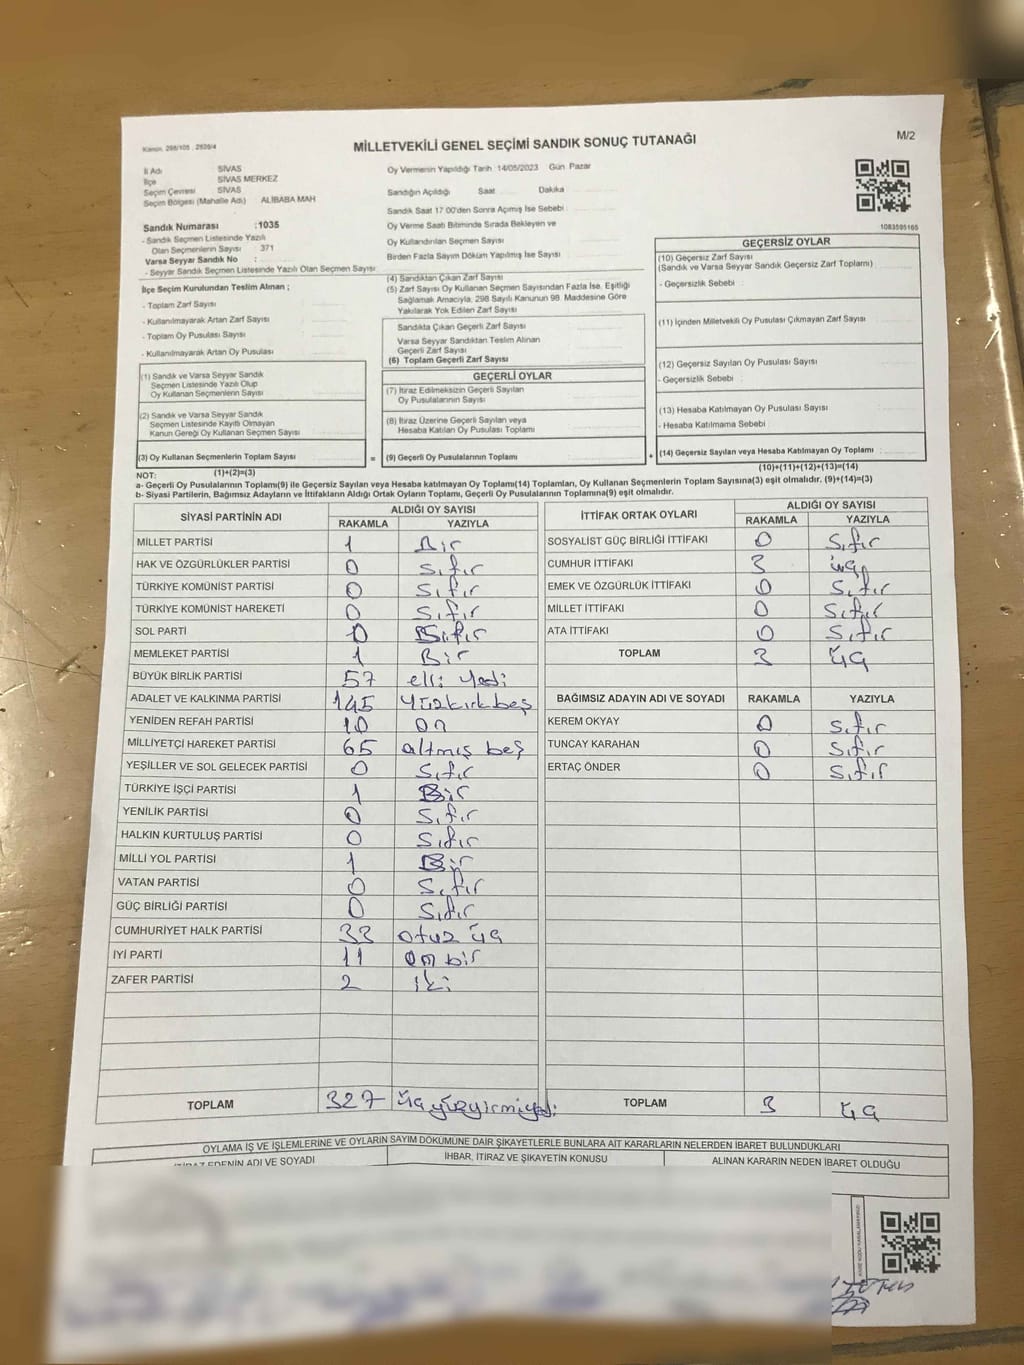 Kanun: 298/105 , 2839/4
MİLLETVEKİLİ GENEL SEÇİMİ SANDIK SONUÇ TUTANAĞI
M/2
İl Adı : SİVAS
İlçe : SİVAS MERKEZ
Seçim Çevresi : SİVAS
Seçim Bölgesi (Mahalle Adı) : ALİBABA MAH
Sandık Numarası : 1035
- Sandık Seçmen Listesinde Yazılı
Olan Seçmenlerin Sayısı : 371
Varsa Seyyar Sandık No :
- Seyyar Sandık Seçmen Listesinde Yazılı Olan Seçmen Sayısı
Oy Vermenin Yapıldığı Tarih :14/05/2023 Gün :Pazar
Sandığın Açıldığı Saat Dakika
Sandık Saat 17:00'den Sonra Açılmış İse Sebebi :
Oy Verme Saati Bitiminde Sırada Bekleyen ve
Oy Kullandırılan Seçmen Sayısı
Birden Fazla Sayım Döküm Yapılmış İse Sayısı
1083595165
İlçe Seçim Kurulundan Teslim Alınan ;
- Toplam Zarf Sayısı
- Kullanılmayarak Artan Zarf Sayısı
- Toplam Oy Pusulası Sayısı
- Kullanılmayarak Artan Oy Pusulası
(1) Sandık ve Varsa Seyyar Sandık
Seçmen Listesinde Yazılı Olup
Oy Kullanan Seçmenlerin Sayısı
(2) Sandık ve Varsa Seyyar Sandık
Seçmen Listesinde Kayıtlı Olmayan
Kanun Gereği Oy Kullanan Seçmen Sayısı
(3) Oy Kullanan Seçmenlerin Toplam Sayısı =
(4) Sandıktan Çıkan Zarf Sayısı
(5) Zarf Sayısı Oy Kullanan Seçmen Sayısından Fazla İse, Eşitliği
Sağlamak Amacıyla, 298 Sayılı Kanunun 98. Maddesine Göre
Yakılarak Yok Edilen Zarf Sayısı
Sandıkta Çıkan Geçerli Zarf Sayısı
Varsa Seyyar Sandıktan Teslim Alınan
Geçerli Zarf Sayısı
(6) Toplam Geçerli Zarf Sayısı
GEÇERLİ OYLAR
(7) İtiraz Edilmeksizin Geçerli Sayılan
Oy Pusulalarının Sayısı
(8) İtiraz Üzerine Geçerli Sayılan veya
Hesaba Katılan Oy Pusulası Toplamı
(9) Geçerli Oy Pusulalarının Toplamı +
GEÇERSİZ OYLAR
(10) Geçersiz Zarf Sayısı
(Sandık ve Varsa Seyyar Sandık Geçersiz Zarf Toplamı)
- Geçersizlik Sebebi :
(11) İçinden Milletvekili Oy Pusulası Çıkmayan Zarf Sayısı
(12) Geçersiz Sayılan Oy Pusulası Sayısı
- Geçersizlik Sebebi :
(13) Hesaba Katılmayan Oy Pusulası Sayısı
- Hesaba Katılmama Sebebi
(14) Geçersiz Sayılan veya Hesaba Katılmayan Oy Toplamı
NOT: (1)+(2)=(3) (10)+(11)+(12)+(13)=(14)
a- Geçerli Oy Pusulalarının Toplamı(9) ile Geçersiz Sayılan veya Hesaba katılmayan Oy Toplamı(14) Toplamları, Oy Kullanan Seçmenlerin Toplam Sayısına(3) eşit olmalıdır. (9)+(14)=(3)
b- Siyasi Partilerin, Bağımsız Adayların ve İttifakların Aldığı Ortak Oyların Toplamı, Geçerli Oy Pusulalarının Toplamına(9) eşit olmalıdır.
SİYASİ PARTİNİN ADI ALDIĞI OY SAYISI
RAKAMLA YAZIYLA
MİLLET PARTİSİ 1 Bir
HAK VE ÖZGÜRLÜKLER PARTİSİ 0 Sıfır
TÜRKİYE KOMÜNİST PARTİSİ 0 Sıfır
TÜRKİYE KOMÜNİST HAREKETİ 0 Sıfır
SOL PARTİ 0 Sıfır
MEMLEKET PARTİSİ 1 Bir
BÜYÜK BİRLİK PARTİSİ 57 elli yedi
ADALET VE KALKINMA PARTİSİ 145 Yüzkırkbeş
YENİDEN REFAH PARTİSİ 10 On
MİLLİYETÇİ HAREKET PARTİSİ 65 altmış beş
YEŞİLLER VE SOL GELECEK PARTİSİ 0 Sıfır
TÜRKİYE İŞÇİ PARTİSİ 1 Bir
YENİLİK PARTİSİ 0 Sıfır
HALKIN KURTULUŞ PARTİSİ 0 Sıfır
MİLLİ YOL PARTİSİ 1 Bir
VATAN PARTİSİ 0 Sıfır
GÜÇ BİRLİĞİ PARTİSİ 0 Sıfır
CUMHURİYET HALK PARTİSİ 33 otuz üç
İYİ PARTİ 11 on bir
ZAFER PARTİSİ 2 iki
TOPLAM 327 üç yüzyirmiyedi
İTTİFAK ORTAK OYLARI ALDIĞI OY SAYISI
RAKAMLA YAZIYLA
SOSYALİST GÜÇ BİRLİĞİ İTTİFAKI 0 Sıfır
CUMHUR İTTİFAKI 3 üç
EMEK VE ÖZGÜRLÜK İTTİFAKI 0 Sıfır
MİLLET İTTİFAKI 0 Sıfır
ATA İTTİFAKI 0 Sıfır
TOPLAM 3 üç
BAĞIMSIZ ADAYIN ADI VE SOYADI RAKAMLA YAZIYLA
KEREM OKYAY 0 Sıfır
TUNCAY KARAHAN 0 Sıfır
ERTAÇ ÖNDER 0 Sıfır
TOPLAM 3 üç
OYLAMA İŞ VE İŞLEMLERİNE VE OYLARIN SAYIM DÖKÜMÜNE DAİR ŞİKAYETLERLE BUNLARA AİT KARARLARIN NELERDEN İBARET BULUNDUKLARI
İTİRAZ EDENİN ADI VE SOYADI İHBAR, İTİRAZ VE ŞİKAYETİN KONUSU ALINAN KARARIN NEDEN İBARET OLDUĞU